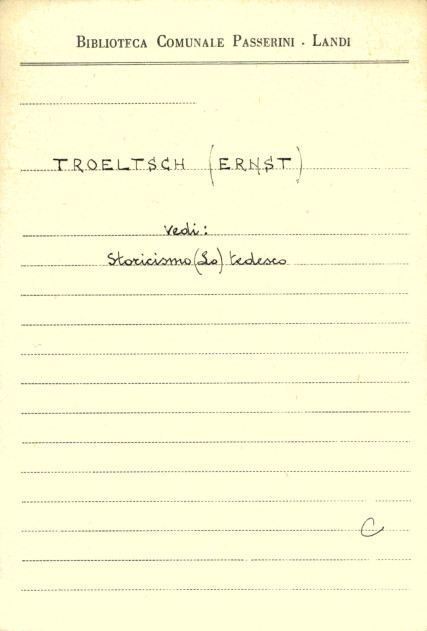 BIBLIOTECA COMUNALE PASSERINI - LANDI
TROELTSCH (ERNST)
vedi:
Storicismo (Lo) tedesco
C